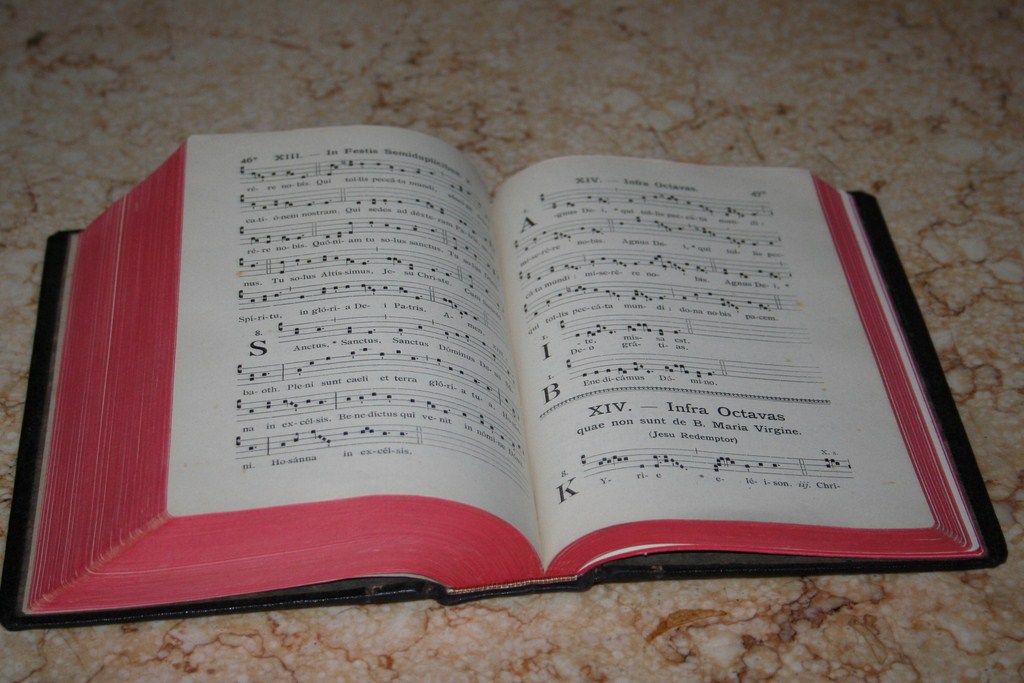 46* XIII. — In Festis Semiduplicibus
ré- re nobis. Qui tol-lis peccá-ta mundi,
ca-ti- ó-nem nostram. Qui sedes ad déxte-ram
ré-re no-bis. Quó-ni- am tu so-lus sanctus.
nus. Tu so-lus Altis-simus, Je- su Chri-ste.
Spí-ri-tu, in gló-ri- a De- i Pa-tris. A- men.
8.
S Anctus, * Sanctus, Sanctus Dóminus De-
ba-oth. Ple-ni sunt caeli et terra gló-ri- a tu- a.
na in ex-cél-sis. Be-ne-dictus qui ve-nit in nómi-ne
ni. Ho-sánna in ex-cél-sis.
XIV. — Infra Octavas. 47*
A -gnus De-i, * qui tol-lis pec-cá-ta mun- di:
mi-se-ré-re no-bis. Agnus De- i, * qui tol- lis pec-
cá-ta mundi: mi-se-ré-re no- bis. Agnus De- i, *
qui tol-lis pec-cá-ta mun- di: do-na no-bis pacem.
1.
I - te, mis- sa est.
De- o grá- ti- as.
1.
B Ene-di-cámus Dó- mi-no.
XIV. — Infra Octavas
quae non sunt de B. Maria Virgine.
(Jesu Redemptor)
8. X. s.
K Y- ri- e * e- lé- i- son. iij. Chri-